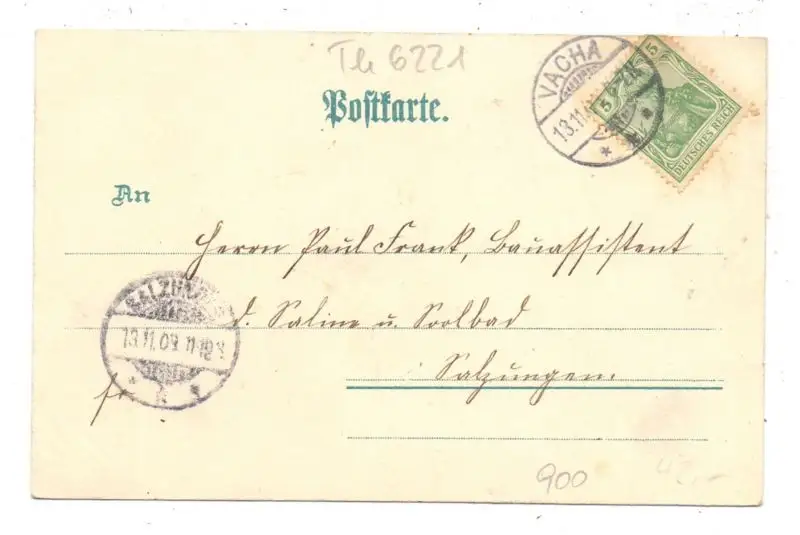 Th 6221
VACHA
13.11.
5
5
DEUTSCHES REICH
Postkarte.
An
Herrn Paul Frank, Bauassistent
d. Saline u. Soolbad
Salzungen.
SALZUNGEN
13.11.09. 11-12
fr
900
42,-